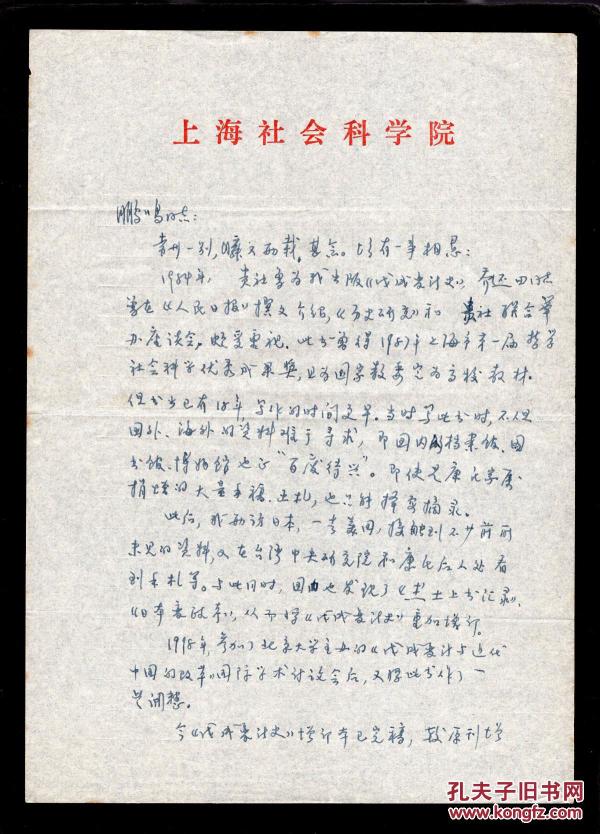 上海社会科学院
鹏鸣同志：
常州一别，瞬又两载，甚念。现有一事相恳：
1984年，贵社曾为我出版《戊戌变法史》，乔还田同志
曾在《人民日报》撰文介绍，《历史研究》和贵社联合举
办座谈会，颇受重视。此书曾得1987年上海市第一届哲学
社会科学优秀成果奖，且为国家教委定为高校教材。
但书出已有15年，写作的时间更早。当时写此书时，不但
国外、海外的资料难于寻求，即国内档案馆、图
书馆、博物馆也正“百废待兴”。即使是康氏家属
捐赠的大量手稿、书札，也只能择要摘录。
此后，我两访日本，一去美国，接触到不少前所
未见的资料，又在台湾中央研究院和康氏后人处看
到手札等。与此同时，国内也发现了《杰士上书汇录》、
《日本变政考》，从而将《戊戌变法史》重加增订。
1998年，参加了北京大学主办的《戊戌变法与近代
中国的改革》国际学术讨论会后，又将此书作了一
些调整。
今《戊戌变法史》增订本已完稿，较原刊增
孔夫子旧书网
www.kongfz.com